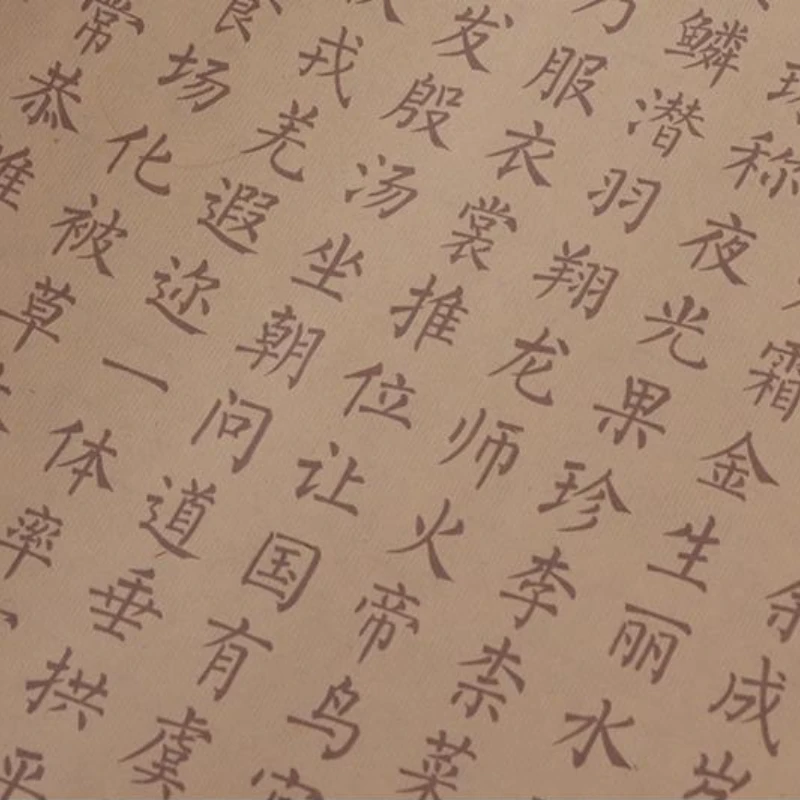 余成岁
霜金生丽水
称夜光果珍李柰菜
鳞潜羽翔龙师火帝鸟官
乃服衣裳推位让国有虞
发殷汤坐朝问道垂拱平
戎羌遐迩一体率
食场化被草
常恭惟